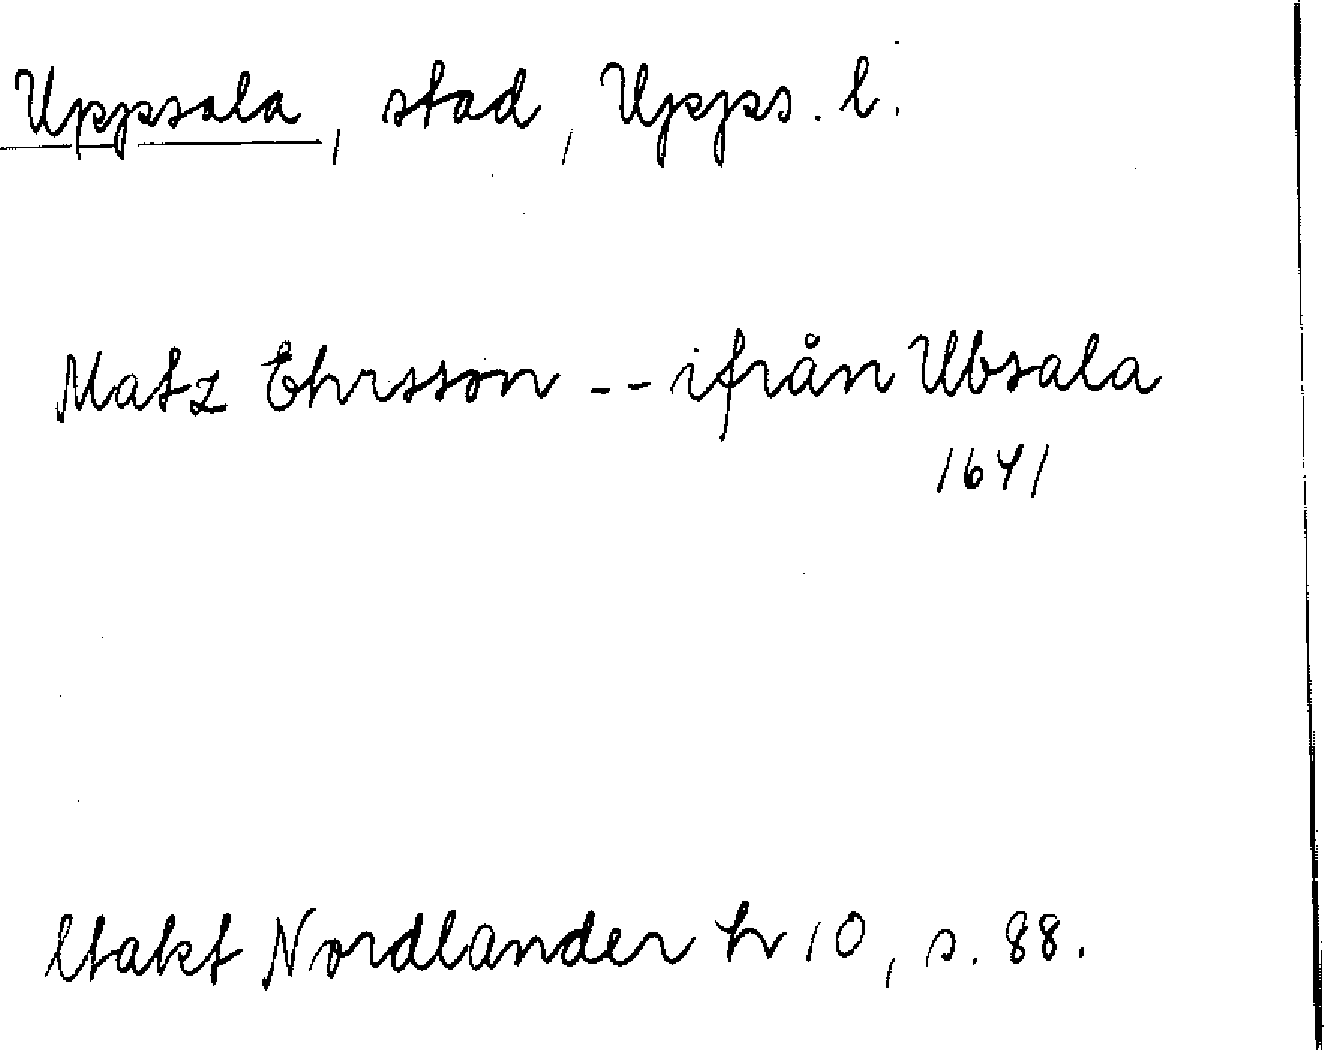 Uppsala, stad, Upps. l.
Matz Ehrsson -- ifrån Ubsala
1641
Nordlander h 10, s. 88.